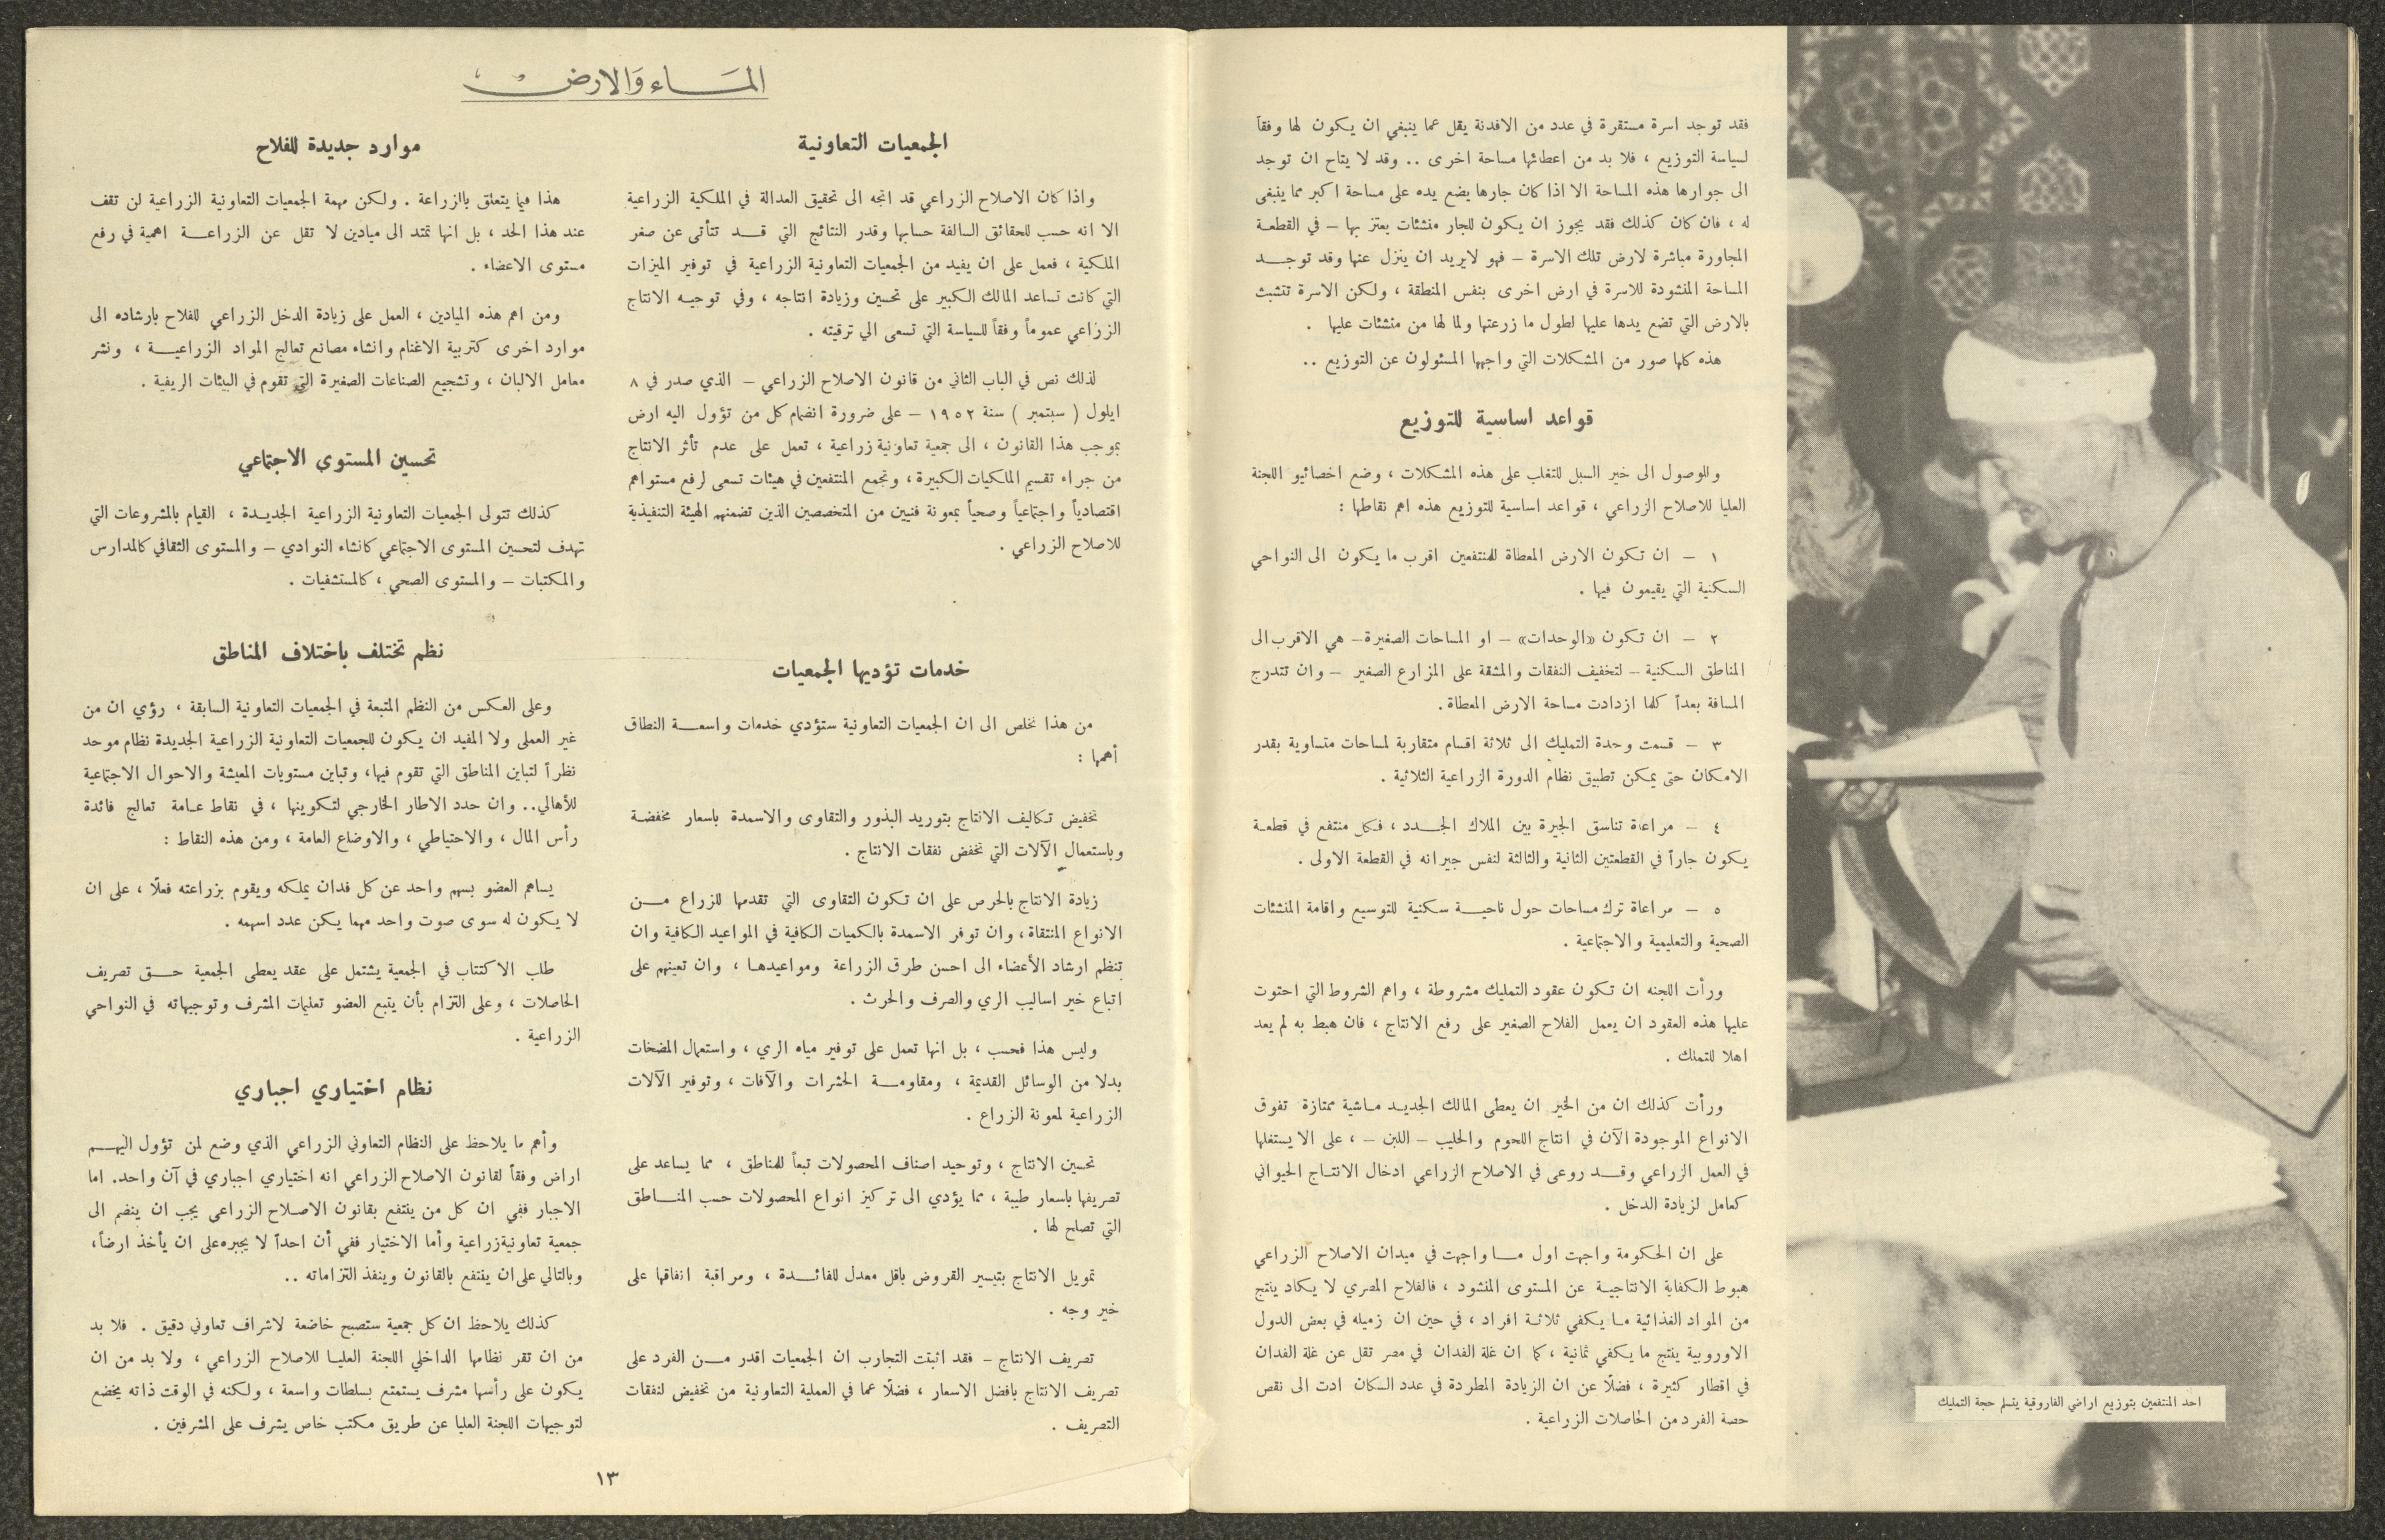 فقد توجد اسرة مستقرة في عدد من الافدنة يقل عما ينبغي ان يكون لها وفقاً
لسياسة التوزيع ، فلا بد من اعطائها مساحة اخرى .. وقد لا يتاح ان توجد
الى جوارها هذه المساحة الا اذا كان جارها يضع يده على مساحة اكبر مما ينبغي
له ، فان كان كذلك فقد يجوز ان يكون للجار منشئات يعتز بها – في القطعة
المجاورة مباشرة لارض تلك الاسرة – فهو لايريد ان ينزل عنها وقد توجد
المساحة المنشودة للاسرة في ارض اخرى بنفس المنطقة ، ولكن الاسرة تتشبث
بالارض التي تضع يدها عليها لطول ما زرعتها ولما لها من منشئات عليها .
هذه كلها صور من المشكلات التي واجهها المسئولون عن التوزيع ..
قواعد اساسية للتوزيع
وللوصول الى خير السبل للتغلب على هذه المشكلات ، وضع اخصائيو اللجنة
العليا للاصلاح الزراعي ، قواعد اساسية للتوزيع هذه اهم نقاطها :
١ – ان تكون الارض المعطاة للمنتفعين اقرب ما يكون الى النواحي
السكنية التي يقيمون فيها .
٢ – ان تكون «الوحدات» – او المساحات الصغيرة – هي الاقرب الى
المناطق السكنية – لتخفيف النفقات والمشقة على المزارع الصغير – وان تتدرج
المسافة بعداً كلما ازدادت مساحة الارض المعطاة .
٣ – قسمت وحدة التمليك الى ثلاثة اقسام متقاربة لمساحات متساوية بقدر
الامكان حتى يمكن تطبيق نظام الدورة الزراعية الثلاثية .
٤ – مراعاة تناسق الجيرة بين الملاك الجدد ، فكل منتفع في قطعة
يكون جاراً في القطعتين الثانية والثالثة لنفس جيرانه في القطعة الاولى .
٥ – مراعاة ترك مساحات حول ناحية سكنية للتوسيع واقامة المنشئات
الصحية والتعليمية والاجتماعية .
ورأت اللجنه ان تكون عقود التمليك مشروطة ، واهم الشروط التي احتوت
عليها هذه العقود ان يعمل الفلاح الصغير على رفع الانتاج ، فان هبط به لم يعد
اهلا للتملك .
ورأت كذلك ان من الخير ان يعطى المالك الجديد ماشية ممتازة تفوق
الانواع الموجودة الآن في انتاج اللحوم والحليب – اللبن – ، على الا يستغلها
في العمل الزراعي وقد روعى في الاصلاح الزراعي ادخال الانتاج الحيواني
كعامل لزيادة الدخل .
على ان الحكومة واجهت اول ما واجهت في ميدان الاصلاح الزراعي
هبوط الكفاية الانتاجية عن المستوى المنشود ، فالفلاح المصري لا يكاد ينتج
من المواد الغذائية ما يكفي ثلاثة افراد ، في حين ان زميله في بعض الدول
الاوروبية ينتج ما يكفي ثمانية ، كما ان غلة الفدان في مصر تقل عن غلة الفدان
في اقطار كثيرة ، فضلًا عن ان الزيادة المطردة في عدد السكان ادت الى نقص
حصة الفرد من الحاصلات الزراعية .
احد المنتفعين بتوزيع اراضي الفاروقية يتسلم حجة التمليك
المَاء وَالارض
الجمعيات التعاونية
واذا كان الاصلاح الزراعي قد اتجه الى تحقيق العدالة في الملكية الزراعية
الا انه حسب للحقائق السالفة حسابها وقدر النتائج التي قد تتأتى عن صغر
الملكية ، فعمل على ان يفيد من الجمعيات التعاونية الزراعية في توفير الميزات
التي كانت تساعد المالك الكبير على تحسين وزيادة انتاجه ، وفي توجيه الانتاج
الزراعي عموماً وفقاً للسياسة التي تسعى الي ترقيته .
لذلك نص في الباب الثاني من قانون الاصلاح الزراعي – الذي صدر في ٨
ايلول ( سبتمبر ) سنة ١٩٥٢ – على ضرورة انضمام كل من تؤول اليه ارض
بموجب هذا القانون ، الى جمعية تعاونية زراعية ، تعمل على عدم تأثر الانتاج
من جراء تقسيم الملكيات الكبيرة ، وتجمع المنتفعين في هيئات تسعى لرفع مستواهم
اقتصادياً واجتماعياً وصحياً بمعونة فنيين من المتخصصين الذين تضمنهم الهيئة التنفيذية
للاصلاح الزراعي .
خدمات تؤديها الجمعيات
من هذا نخلص الى ان الجمعيات التعاونية ستؤدي خدمات واسعة النطاق
أهمها :
تخفيض تكاليف الانتاج بتوريد البذور والتقاوى والاسمدة باسعار مخفضة
وباستعمال الآلات التي تخفض نفقات الانتاج .
زيادة الانتاج بالحرص على ان تكون التقاوى التي تقدمها للزراع من
الانواع المنتقاة ، وان توفر الاسمدة بالكميات الكافية في المواعيد الكافية وان
تنظم ارشاد الأعضاء الى احسن طرق الزراعة ومواعيدها ، وان تعينهم على
اتباع خير اساليب الري والصرف والحرث .
وليس هذا فحسب ، بل انها تعمل على توفير مياه الري ، واستعمال المضخات
بدلا من الوسائل القديمة ، ومقاومة الحشرات والآفات ، وتوفير الآلات
الزراعية لمعونة الزراع .
تحسين الانتاج ، وتوحيد اصناف المحصولات تبعاً للمناطق ، مما يساعد على
تصريفها باسعار طيبة ، مما يؤدي الى تركيز انواع المحصولات حسب المناطق
التي تصلح لها .
تمويل الانتاج بتيسير القروض باقل معدل للفائدة ، ومراقبة انفاقها على
خير وجه .
تصريف الانتاج – فقد اثبتت التجارب ان الجمعيات اقدر من الفرد على
تصريف الانتاج بافضل الاسعار ، فضلًا عما في العملية التعاونية من تخفيض لنفقات
التصريف .
موارد جديدة للفلاح
هذا فيما يتعلق بالزراعة . ولكن مهمة الجمعيات التعاونية الزراعية لن تقف
عند هذا الحد ، بل انها تمتد الى ميادين لا تقل عن الزراعة اهمية في رفع
مستوى الاعضاء .
ومن اهم هذه الميادين ، العمل على زيادة الدخل الزراعي للفلاح بارشاده الى
موارد اخرى كتربية الاغنام وانشاء مصانع تعالج المواد الزراعية ، ونشر
معامل الالبان ، وتشجيع الصناعات الصغيرة التي تقوم في البيئات الريفية .
تحسين المستوى الاجتماعي
كذلك تتولى الجمعيات التعاونية الزراعية الجديدة ، القيام بالمشروعات التي
تهدف لتحسين المستوى الاجتماعي كانشاء النوادي – والمستوى الثقافي كالمدارس
والمكتبات – والمستوى الصحي ، كالمستشفيات .
نظم تختلف باختلاف المناطق
وعلى العكس من النظم المتبعة في الجمعيات التعاونية السابقة ، رؤي ان من
غير العملى ولا المفيد ان يكون للجمعيات التعاونية الزراعية الجديدة نظام موحد
نظراً لتباين المناطق التي تقوم فيها ، وتباين مستويات المعيشة والاحوال الاجتماعية
للأهالي .. وان حدد الاطار الخارجي لتكوينها ، في نقاط عامة تعالج فائدة
رأس المال ، والاحتياطي ، والاوضاع العامة ، ومن هذه النقاط :
يساهم العضو بسهم واحد عن كل فدان يملكه ويقوم بزراعته فعلًا ، على ان
لا يكون له سوى صوت واحد مهما يكن عدد اسهمه .
طلب الاكتتاب في الجمعية يشتمل على عقد يعطى الجمعية حق تصريف
الحاصلات ، وعلى التزام بأن يتبع العضو تعليمات المشرف وتوجيهاته في النواحي
الزراعية .
نظام اختياري اجباري
وأهم ما يلاحظ على النظام التعاوني الزراعي الذي وضع لمن تؤول اليهم
اراض وفقاً لقانون الاصلاح الزراعي انه اختياري اجباري في آن واحد. اما
الاجبار ففي ان كل من ينتفع بقانون الاصلاح الزراعي يجب ان ينضم الى
جمعية تعاونيةزراعية وأما الاختيار ففي أن احداً لا يجبره على ان يأخذ ارضاً ،
وبالتالي على ان ينتفع بالقانون وينفذ التزاماته ..
كذلك يلاحظ ان كل جمعية ستصبح خاضعة لاشراف تعاوني دقيق . فلا بد
من ان تقر نظامها الداخلي اللجنة العليا للاصلاح الزراعي ، ولا بد من ان
يكون على رأسها مشرف يستمتع بسلطات واسعة ، ولكنه في الوقت ذاته يخضع
لتوجيهات اللجنة العليا عن طريق مكتب خاص يشرف على المشرفين .
١٣